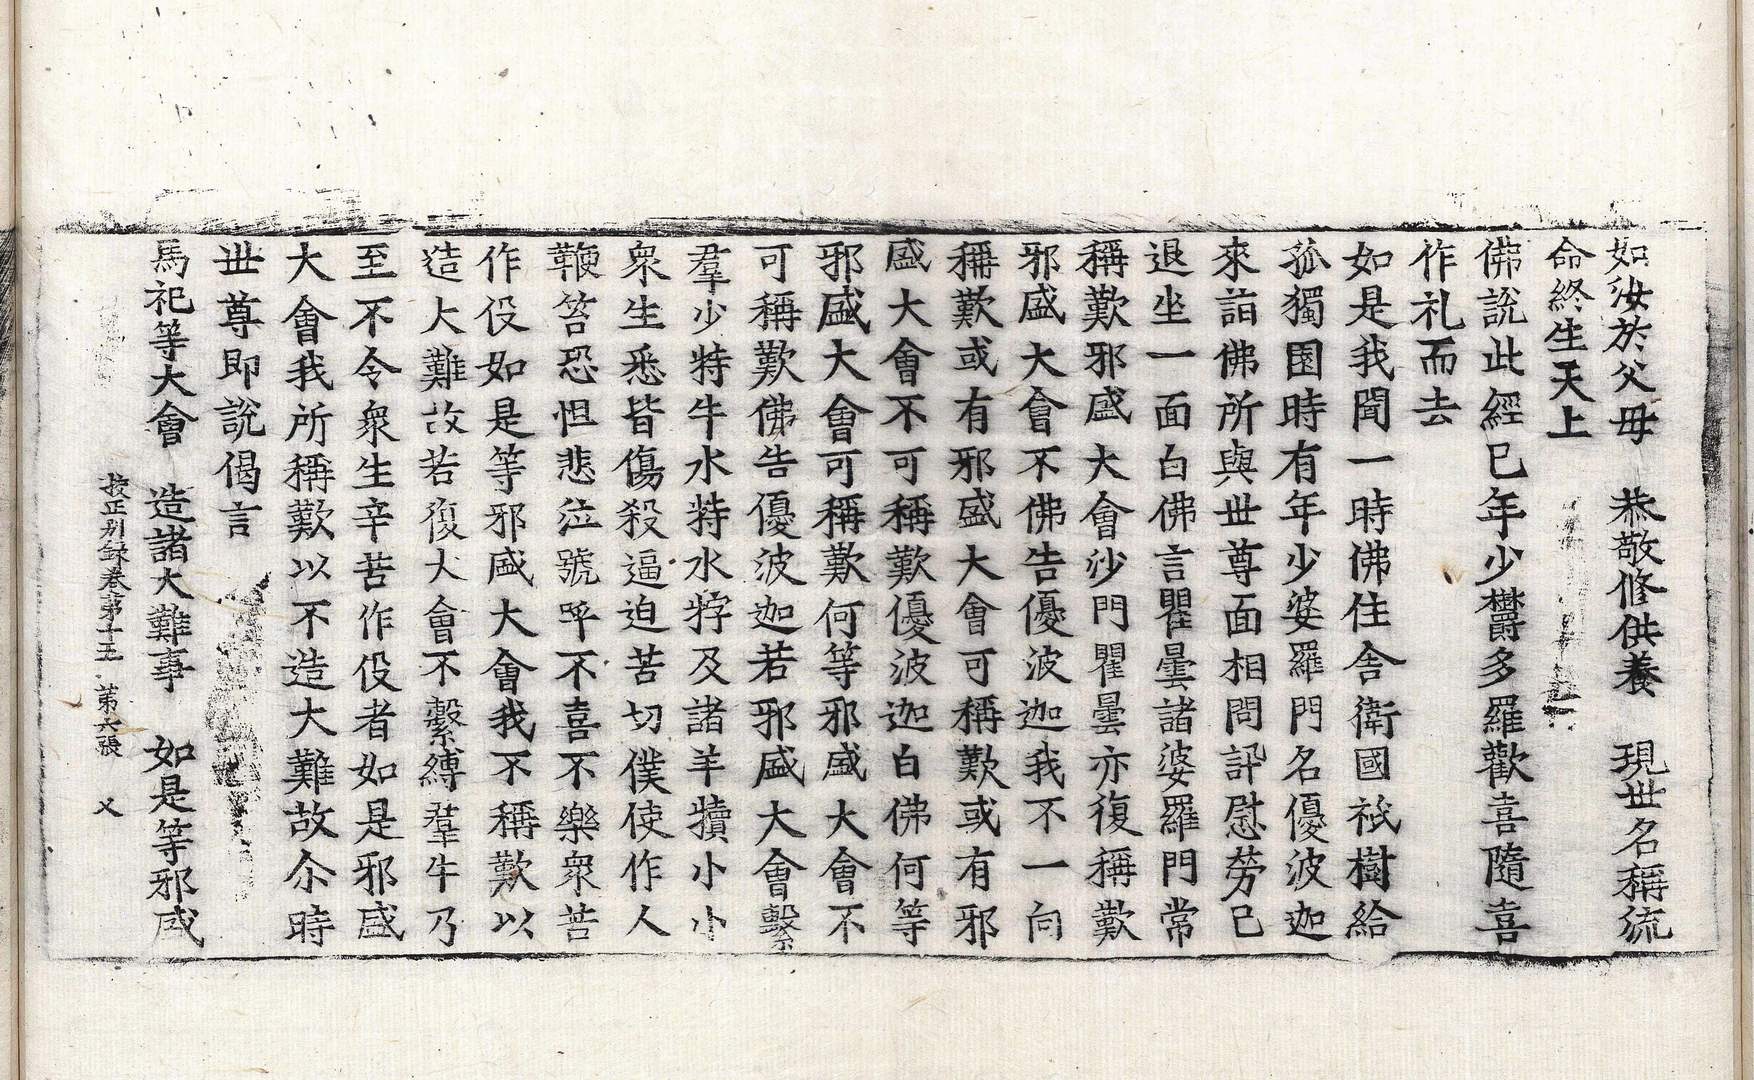 如汝於父母　恭敬修供養　現世名稱流
命終生天上
佛說此經已年少欝多羅歡喜隨喜
作礼而去
如是我聞一時佛住舍衛國祇樹給
孤獨園時有年少婆羅門名優波迦
來詣佛所與世尊面相問訊慰勞已
退坐一面白佛言瞿曇諸婆羅門常
稱歎邪盛大會沙門瞿曇亦復稱歎
邪盛大會不佛告優波迦我不一向
稱歎或有邪盛大會可稱歎或有邪
盛大會不可稱歎優波迦白佛何等
邪盛大會可稱歎何等邪盛大會不
可稱歎佛告優波迦若邪盛大會繫
羣少特牛水特水牸及諸羊犢小小
衆生悉皆傷殺逼迫苦切僕使作人
鞭笞恐怛悲泣號呼不喜不樂衆苦
作役如是等邪盛大會我不稱歎以
造大難故若復大會不繫縛羣牛乃
至不令衆生辛苦作役者如是邪盛
大會我所稱歎以不造大難故尒時
世尊即說偈言
馬祀等大會　造諸大難事　如是等邪盛
校正别録卷第十五　第六張